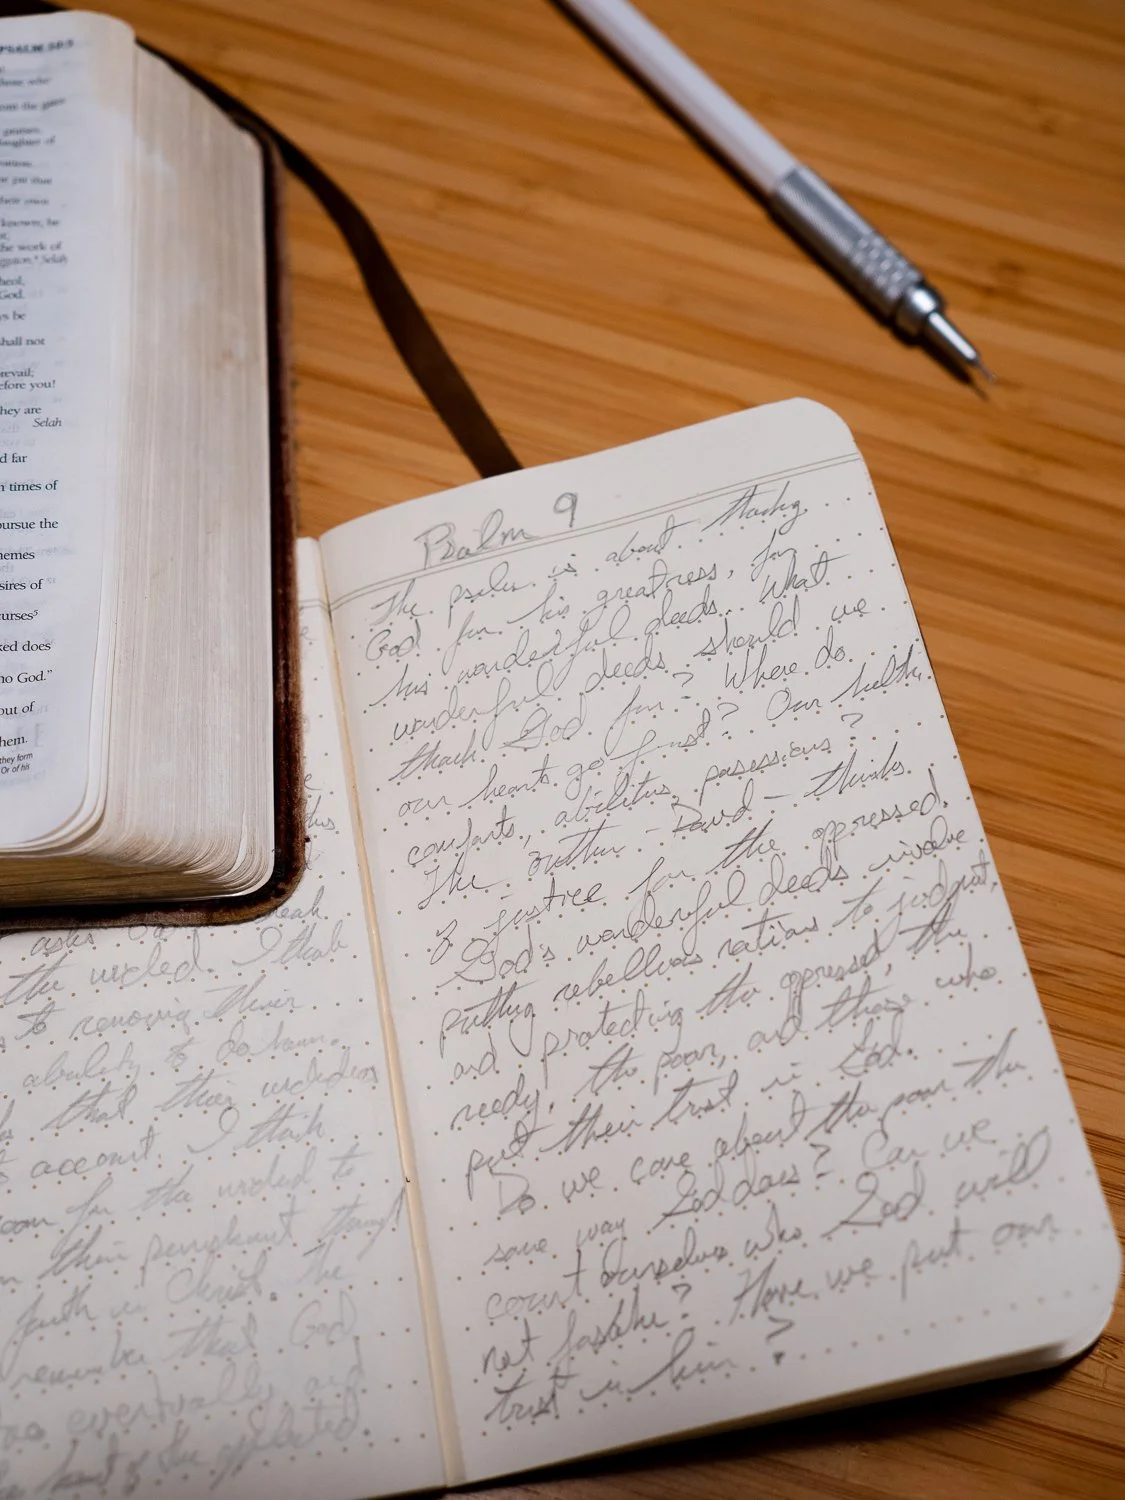 PSALM
those who
from the gate
praises,
daughter of
their own
known; he
the work of
Selah
heol,
God.
ys be
shall not
revail;
efore you!
hey are
Selah
d far
n times of
oursue the
hemes
sires of
curses⁵
ked does
no God."
out of
hem.
they form
Or of his
asks
the wicked. I think
to removing their
ability to do harm.
that their wickedness
account. I think
for the wicked to
their punishment through
faith in Christ. The
remember that God
eventually
of the afflicted.
Psalm 9
The psalm is about thanking
God for his greatness, for
his wonderful deeds. What
wonderful deeds should we
thank God for? Where do
our hearts go first? Our health,
comforts, abilities, posessions?
The author - David - thinks
of justice for the oppressed.
God's wonderful deeds involve
putting rebellious nations to judgment,
and protecting the oppressed, the
needy, the poor, and those who
put their trust in God.
Do we care about the poor the
same way God does? Can we
count ourselves who God will
not forsake? Have we put our
trust in him?